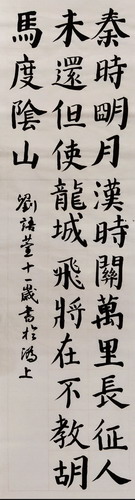 秦時明月漢時關萬里長征人
未還但使龍城飛將在不教胡
馬度陰山
劉語萱十一歲書於海上